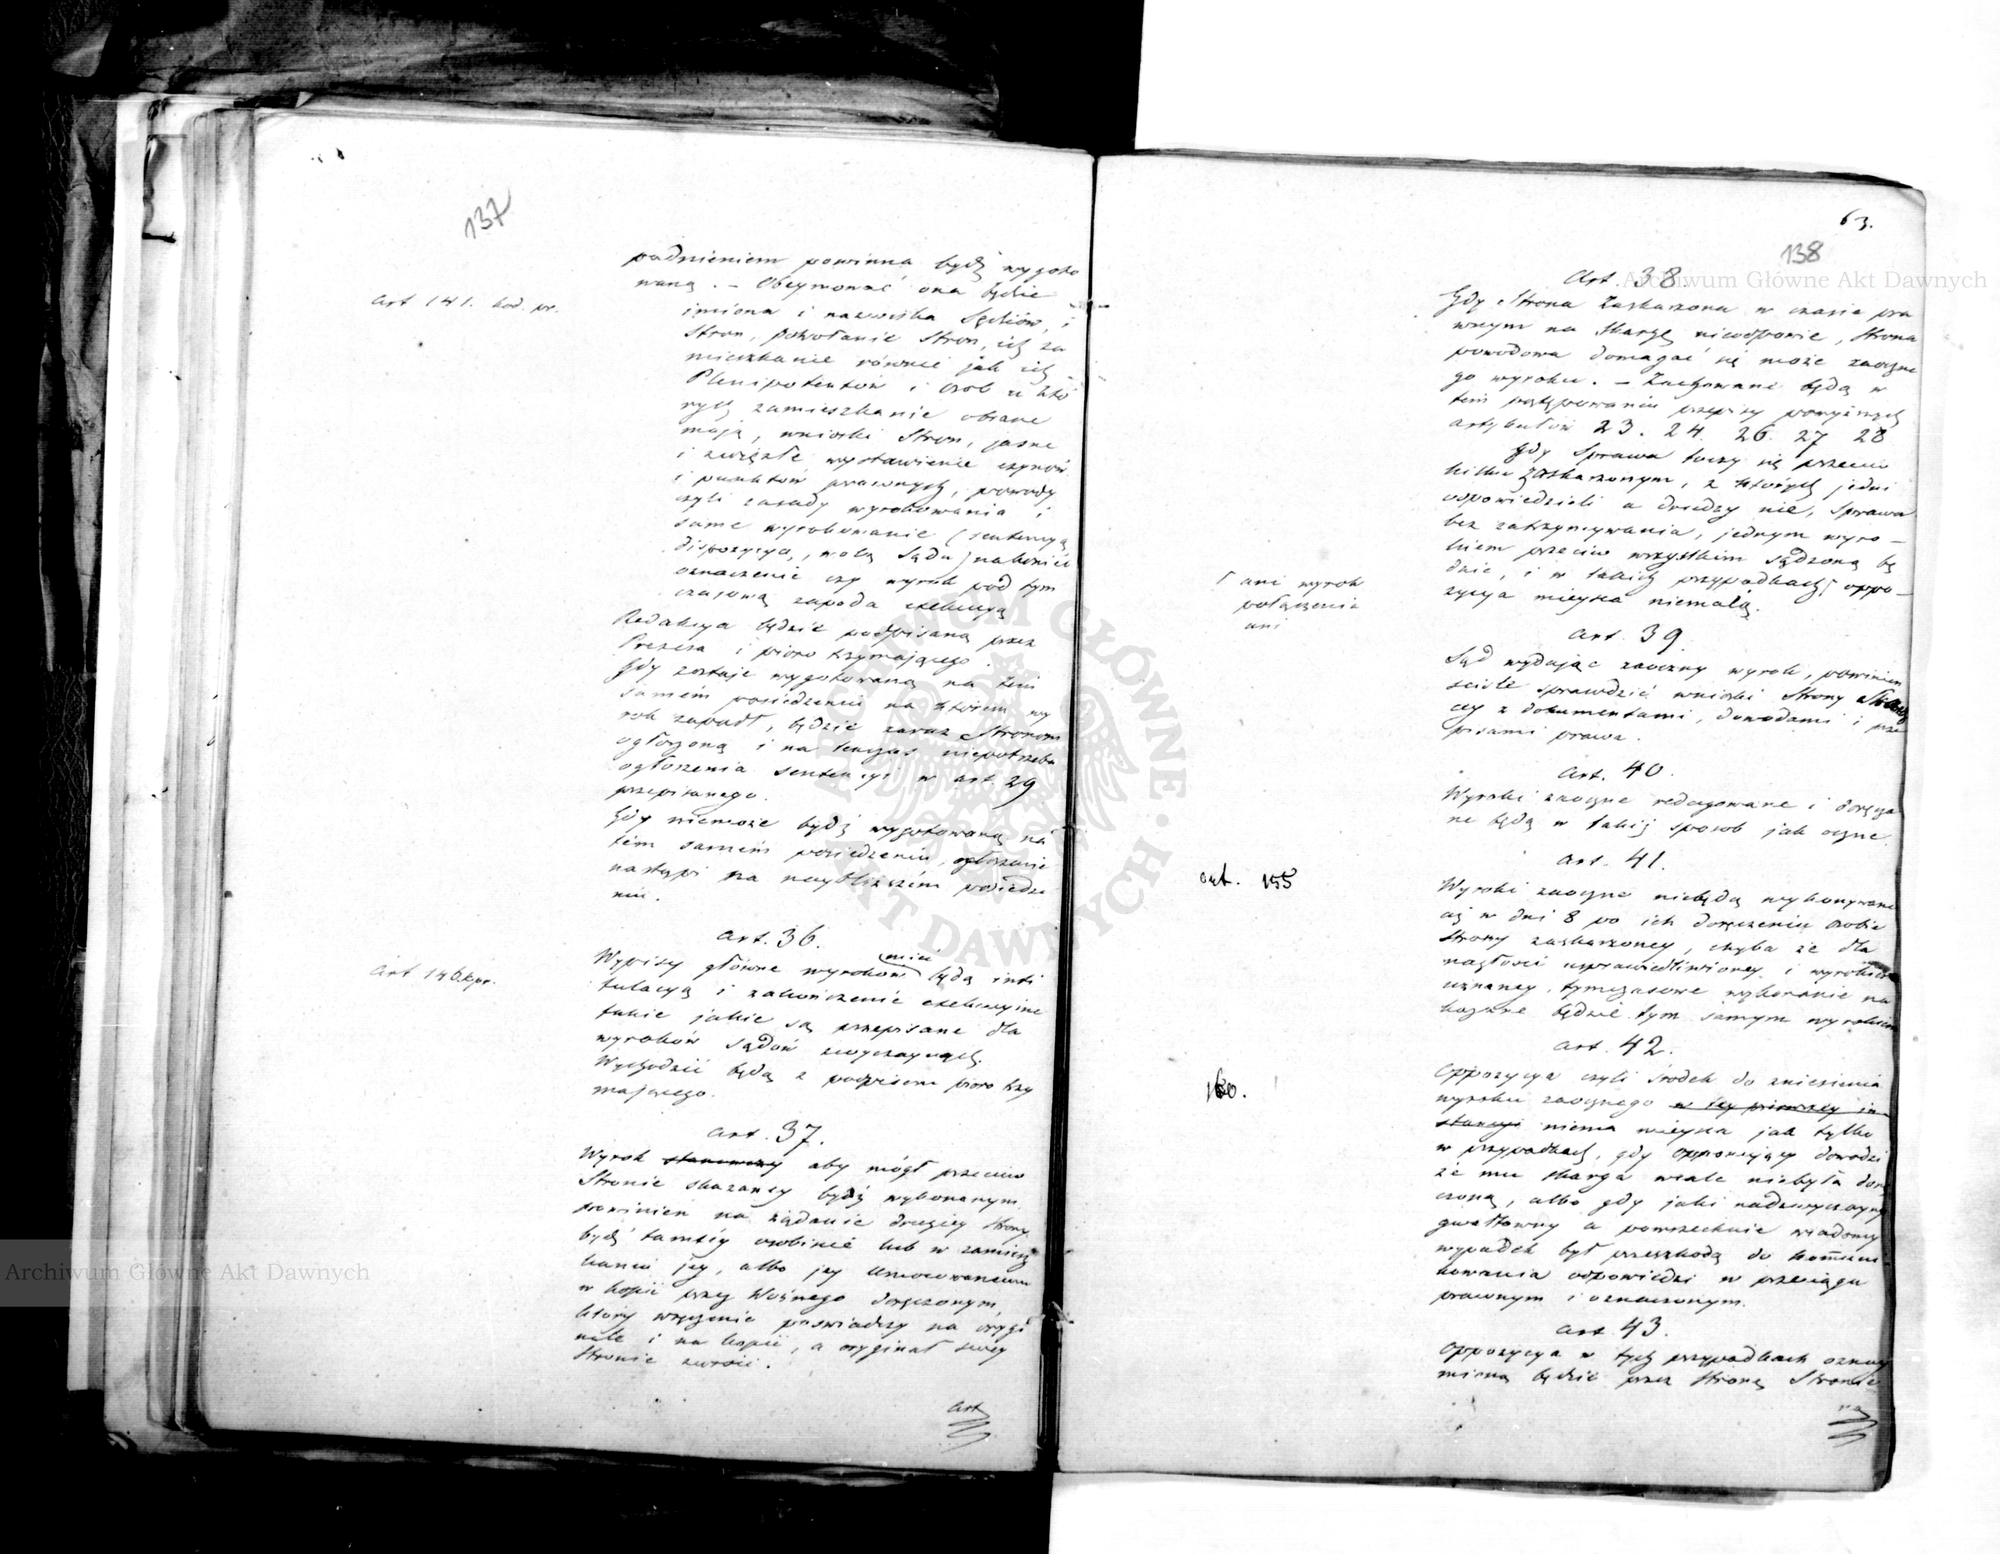 137
padnieniem powinna bydź wygoto
waną. – Obeymować ona będzie
art 141. kod. pr.
imiona i nazwiska Sędziów, i
Stron, powołanie Stron, ich za
mieszkanie równie jak ich
Plenipotentów i osob u któ
rych zamieszkanie obrane
mają, wnioski Stron, jasne
i zwięzłe wystawienie czynów
i punktów prawnych, powody
czyli zasady wyrokowania i
same wyrokowanie (sentencyą
dispozycyą, wolą Sądu) nakoniec
oznaczenie czy wyrok pod tym
czasową zapada exekucyą
Redakcya będzie podpisaną przez
Prezesa i pioro trzymającego.
Gdy zostaje wygotowaną na tem
samem posiedzeniu na ktorem wy
rok zapadł, będzie zaraz Stronom
ogłoszoną i na tenczas niepotrzeba
ogłoszenia sentencyi w art. 29
przepisanego.
Gdy niemoże bydź wygotowaną na
tém saméms posiedzeniu, ogłoszenie
nastąpi na naybliższém posiedze
niu.
art. 36.
art 146 kpr.
Wypisy główne wyroków będą
tulacyą i zakończenie exekucyine
takie jakie są przepisane dla
wyroków Sądów zwyczaynych.
Wychodzić będą z podpisem pioro trzy
mającego.
art. 37.
Wyrok stanowczy aby mógł przeciw
Stronie skazaney bydź wykonanym
powinien na żądanie drugiey strony
bydź tamtéy osobiscie lub w zamiesz
kaniu jey, albo jey Umocowanemu
w kopii przez Woźnego doręczonym,
który wręczenie poświadczy na orygi
nale i na kopii, a oryginał swey
Stronie zwróci.
art
63.
138
Art. 38.
Gdy Strona Zaskarzona w czasie pra
wnym na skargę nieodpowie, strona
powodowa domagać się może zaoczne
go wyroku. – Zachowane będą w
tem postępowaniu przepisy powyższych
artykułów 23. 24. 26. 27 28
Gdy Sprawa toczy się przeciw
kilku Zaskarzonym, z których jedni
odpowiedzieli a drudzy nie, Sprawa
bez zatrzymywania, jednym wyro–
kiem przeciw wszystkim sądzoną bę
dzie, i w takich przypadkach oppo–
zycya mieysca niemaią.
Γ ani wyrok
połączenia
ani
art. 39.
Sąd wydając zaoczny wyrok, powinien
sciśle sprawdzić wnioski Strony
cey z dokumentami, dowodami i prze
pisami prawa.
art. 40.
Wyroki zaoczne redagowane i doręcza
ne będą w takiż sposob jak oczne.
art. 41.
art. 155
Wyroki zaoczne niebędą wykonywane
aż w dni 8 po ich doręczeniu osobie
Strony zaskarżoney, chyba że dla
nagłości usprawiedliwioney i wyrokiem
uznaney, tymczasowe wykonanie na
kazane będzie tym samym wyrokiem
art. 42.
160.
Oppozycya czyli środek do zniesienia
wyroku zaocznego w tey pierwszey in
stancyi niema mieysca jak tylko
w przypadkach, gdy opponujący dowodzi
że mu skarga wcale niebyła dorę
czoną, albo gdy jaki nadzwyczayny
gwałtowny a powszechnie wiadomy
wypadek był przeszkodą do komuni
kowania odpowiedzi w przeciągu
prawnym i oznaczonym.
art. 43.
Oppozycya w tych przypadkach oznay
mioną będzie przez Stronę Stronie